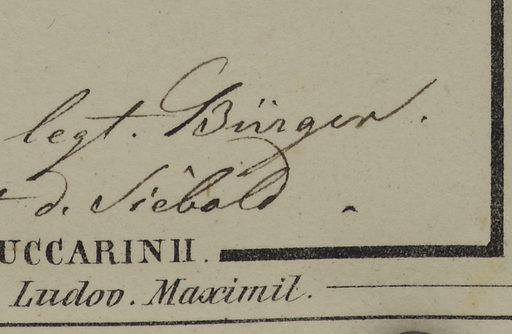 legt. Bürger.
d. Siebold
UCCARINII.
Ludov. Maximil.